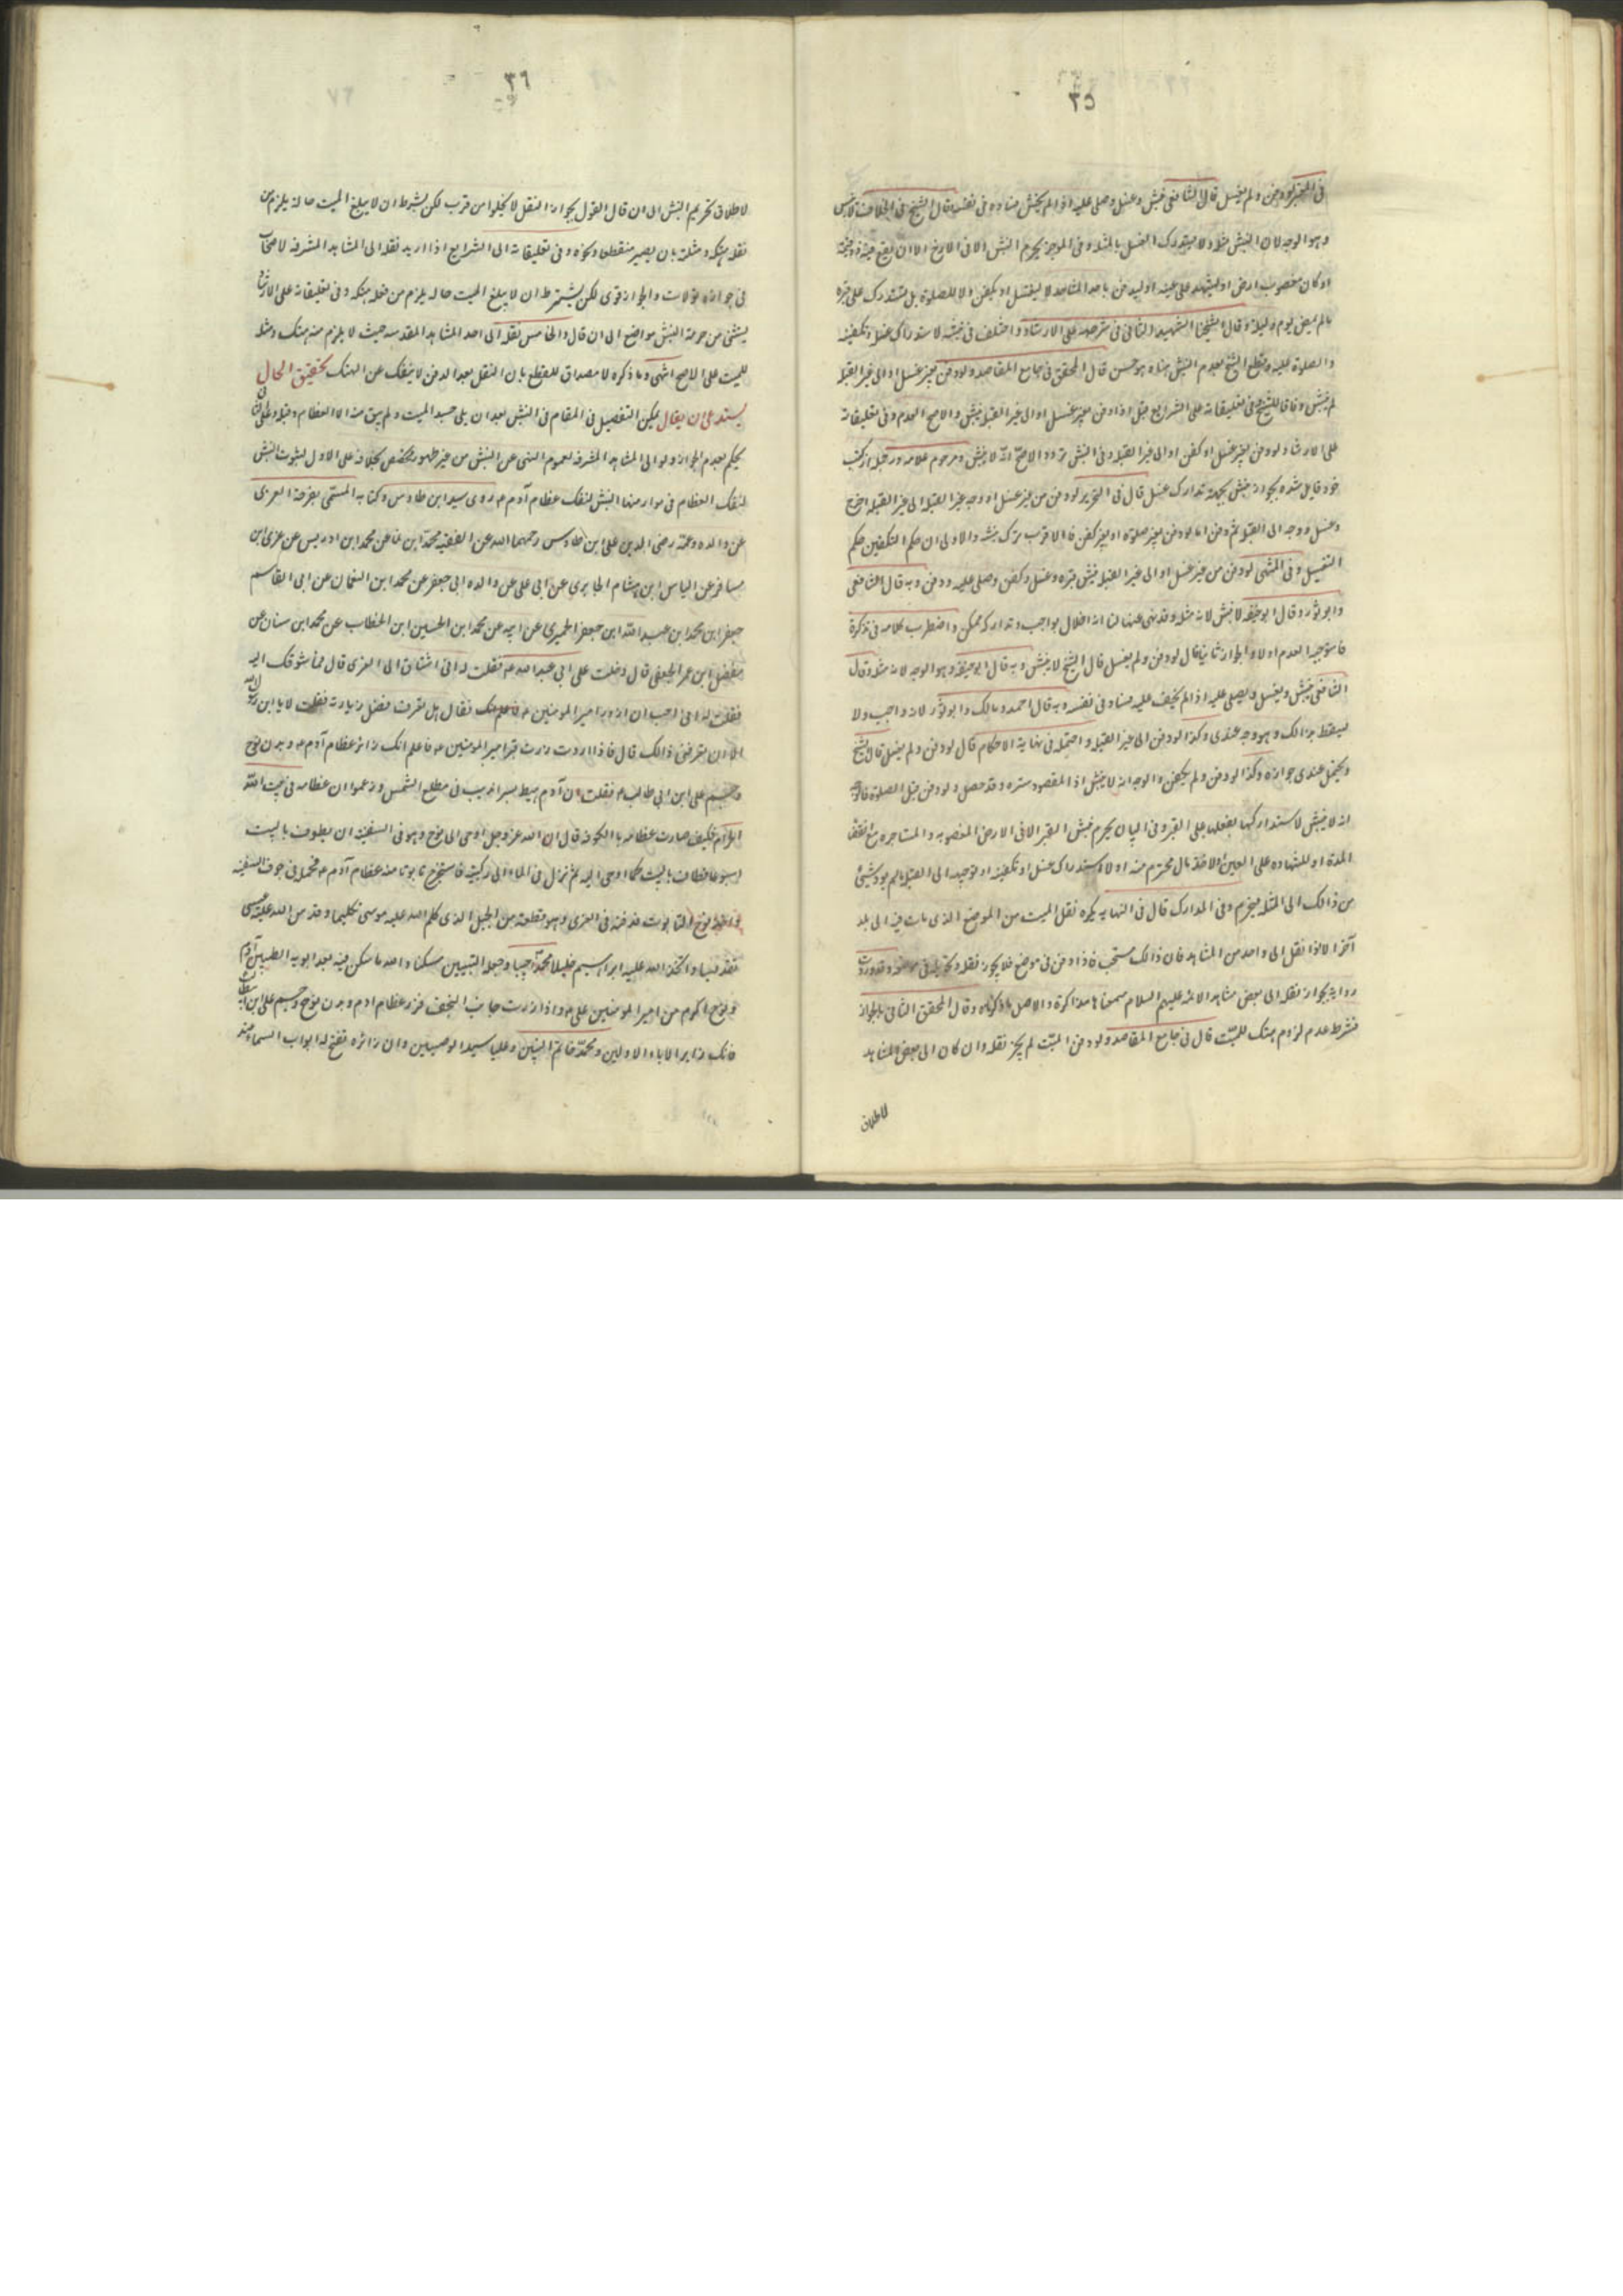 ٣٥
فى لودفن ولم يغسل قال الشافعى ينبش ويغسل ويصلى عليه اذا لم يخش فساده فى نفسه قال الشيخ فى الخلاف لا ينبش
وهو الوجه لان النبش مثلة ولا يستدرك الغسل بالمثلة وفى الموجز يحرم النبش الا فى الارض الا ان يقع فيه
او كان مغصوب ارض او ليشهد على عينه او ليدفن باحد المشاهد لا ليغسل او يكفن او للصلوة بل تستدرك على قبره
ما لم يمض يوم وليلة وقال الشهيد الثانى فى على الارشاد واختلف فى نبشه لاستدراك غسله وتكفينه
والصلوة عليه وقطع الشيخ بعدم النبش هناه حسن قال المحقق فى جامع المقاصد ولو دفن بغير غسل او الى غير القبلة
لم ينبش وفاقا للشيخ وفى تعليقاته على الشرايع قبل اذا دفن بغير غسل او الى غير القبلة ينبش والاصح العدم وفى تعليقاته
على الارشاد ولو دفن بغير غسل او كفن او الى غير القبلة وفى النبش تردد والاصح انه لا ينبش ومرحوم علامه در جمله از كتب
خود قايل شده بجواز نبش بجهة تدارك غسل قال فى التحرير لو دفن من غير غسل او وجه غير القبلة الى غير القبلة اخرج
وغسل ووجه الى القبلة ثم دفن اما لو دفن بغير صلوة او بغير كفن فالاقرب ترك نبشه والاولى ان حكم التكفين حكم
التغسيل وفى المنتهى لو دفن من غير غسل او الى غير القبلة نبش قبره وغسل وكفن وصلى عليه ودفن وبه قال الشافعى
وابو ثور وقال ابو حنيفه لا ينبش لانه مثلة وقد نهى عنها لنا انه اخلال بواجب وتداركه ممكن واضطرب كلامه فى تذكرة
فاستوجه العدم اولا والجواز ثانيا قال لو دفن ولم يغسل قال الشيخ لا ينبش وبه قال ابو حنيفه وهو الوجه لانه مثلة وقال
الشافعى ينبش ويغسل ويصلى عليه اذا لم يخف عليه فساد فى نفسه وبه قال احمد ومالك وابو ثور لانه واجب ولا
يسقط بذالك وهو وجه عندى وكذا لو دفن الى غير القبلة واحتمله فى نهاية الاحكام قال لو دفن ولم يغسل قال الشيخ
ويحتمل عندى جوازه وكذا لو دفن ولم يكفن والوجه انه لا ينبش اذ المقصود ستره وقد حصل ولو دفن قبل الصلوة فالوجه
انه لا ينبش لاستدراكها بفعلها على القبر وفى البيان يحرم نبش القبر الا فى الارض المغصوبه والمستاجره مع انقضاء
المدة او للشهاده على العين او لاخذ مال محترم منه او لاستدراك غسل او تكفينه او توجيهه الى القبلة ما لم يؤد شيئ
من ذالك الى المثلة فيحرم وفى المدارك قال فى النهايه يكره نقل الميت من الموضع الذى مات فيه الى بلد
آخر الا اذا نقل الى واحد من المشاهد فان ذالك مستحب فاذا دفن فى موضع فلا يجوز نقله وتحويله من موضعه وقد وردت
رواية بجواز نقله الى بعض مشاهد الائمه عليهم السلام سمعناها مذاكرة والاصل ما ذكرناه وقال المحقق الثانى بالجواز
بشرط عدم لزوم هتك للميت قال فى جامع المقاصد ولو دفن الميت لم يجز نقله وان كان الى بعض المشاهد
لاطلاق
٣٦
لاطلاق تحريم النبش الى ان قال القول بجواز النقل لا يخلوا من قرب لكن بشرط ان لا يبلغ الميت حالة يلزم من
نقله هتكه ومثلته بان يصير متقطعا ونحوه وفى تعليقاته الى الشرايع اذا اريد نقله الى المشاهد المشرفه لاصحاب
فى جوازه قولان والجواز قوى لكن يشترط ان لا يبلغ الميت حالة يلزم من نقله هتكه وفى تعليقاته على الارشاد
يستثنى من حرمة النبش مواضع الى ان قال والخامس نقله الى احد المشاهد المقدسه حيث لا يلزم منه هتك ومثلة
للميت على الاصح انتهى وما ذكره لا مصداق للقطع بان النقل بعد الدفن لا ينفك عن الهتك تحقيق الحال
يستدعى ان يقال يمكن التفصيل فى المقام فى النبش بعد ان بلى جسد الميت ولم يبق منه الا العظام وقبله وعلى الثانى
يحكم بعدم الجواز ولو الى المشاهد المشرفه لعموم النهى عن النبش من غير ظهور مخصص بخلافه على الاول لثبوت النبش
لنقل العظام فى موارد منها النبش لنقل عظام آدم ع روى سيد ابن طاوس فى كتابه المسمى بفرحة الغرى
عن والده وعمه رضى الدين على ابن طاوس رحمهما الله عن الفقيه محمد ابن نما عن محمد ابن ادريس عن عربى ابن
مسافر عن الياس ابن هشام الحايرى عن ابى على عن والده ابى جعفر عن محمد ابن النعمان عن ابى القاسم
جعفر ابن محمد ابن عبد الله ابن جعفر الحميرى عن ابيه عن محمد ابن الحسين ابن الخطاب عن محمد ابن سنان عن
مفضل ابن عمر الجعفى قال دخلت على ابى عبد الله ع فقلت له انى اشتاق الى الغرى قال فما شوقك اليه
فقلت له انى احب ان ازور امير المؤمنين ع فقال هل تعرف فضل زيارته فقلت لا يا ابن رسول الله
الا ان تعرفنى ذالك قال فاذا اردت زرت قبر امير المؤمنين ع فاعلم انك زائر عظام آدم ع وبدن نوح
وجسم على ابن ابى طالب ع فقلت ان آدم هبط بسرانديب فى مطلع الشمس وزعموا ان عظامه فى بيت الله
الحرام فكيف صارت عظامه بالكوفة قال ان الله عز وجل اوحى الى نوح وهو فى السفينة ان يطوف بالبيت
اسبوعا فطاف بالبيت كما اوحى اليه ثم نزل فى الماء الى ركبتيه فاستخرج تابوتا فيه عظام آدم ع فحمله فى جوف السفينه
فاخذ نوح التابوت فدفنه فى الغرى وهو قطعة من الجبل الذى كلم الله عليه موسى تكليما وقدس الله عليه عيسى
تقديسا واتخذ الله عليه ابراهيم خليلا ومحمدا حبيبا وجعله للنبيين مسكنا والله ما سكن فيه بعد ابويه الطيبين آدم
ونوح اكرم من امير المؤمنين على ع واذا زرت جانب النجف فزر عظام آدم وبدن نوح وجسم على ابن ابيطالب
فانك زاير الاباء الاولين ومحمد خاتم النبيين وعليا سيد الوصيين وان زائره تفتح له ابواب السماء عند